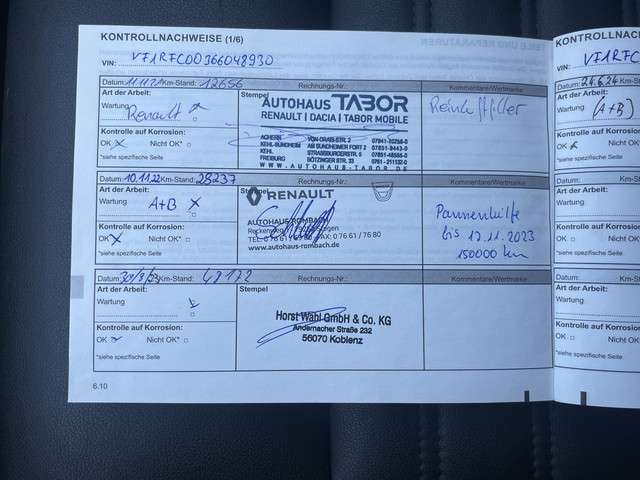 KONTROLLNACHWEISE (1/6)
VIN: VF1RFC00366048930
Datum: 11.11.21 Km-Stand: 12656 Rechnungs-Nr.: Kommentare/Wertmarke
Art der Arbeit: Stempel
Wartung
Renault
AUTOHAUS TABOR
RENAULT | DACIA | TABOR MOBILE
ACHERN VON-DRAIS-STR. 2
KEHL-SUNDHEIM AM SUNDHEIMER FORT 2 07851-9443-0
KEHL STRASSBURGERSTR. 5
FREIBURG BÖTZINGER STR. 23
WWW.AUTOHAUS-TABOR.DE
Kontrolle auf Korrosion:
OK Nicht OK*
*siehe spezifische Seite
Datum: 10.11.22 Km-Stand: 28237 Rechnungs-Nr.: Kommentare/Wertmarke
Art der Arbeit: Stempel
Wartung
A+B
RENAULT
AUTOHAUS ROMBACH
www.autohaus-rombach.de
Pannenhilfe
bis 12.11.2023
150000 km
Kontrolle auf Korrosion:
OK Nicht OK*
*siehe spezifische Seite
Datum: Km-Stand: 48172 Rechnungs-Nr.: Kommentare/Wertmarke
Art der Arbeit: Stempel
Wartung
Horst Wahl GmbH & Co. KG
Andernacher Straße 232
56070 Koblenz
Kontrolle auf Korrosion:
OK Nicht OK*
*siehe spezifische Seite
6.10
KONTROLLNA
VIN: VF1RFC
Datum: 24.6.24 Km
Art der Arbeit:
Wartung
(A+B)
Kontrolle auf Korr
OK Nicht OK
*siehe spezifische Seite
Datum: Km
Art der Arbeit:
Wartung
Kontrolle auf Korr
OK Nicht OK
*siehe spezifische Seite
Datum: Km
Art der Arbeit:
Wartung
Kontrolle auf Korr
OK Nicht OK
*siehe spezifische Seite